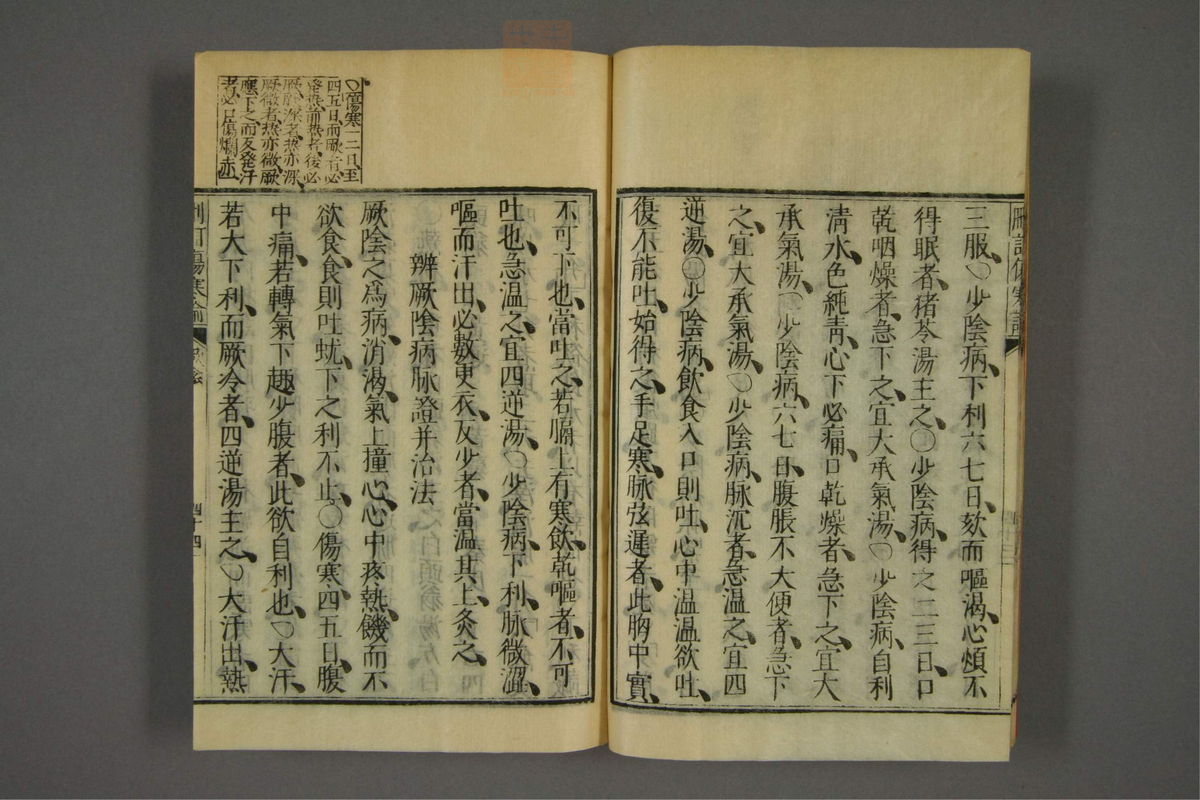 三服、〇少陰病、下利六七日、欬而嘔渴、心煩不
得眠者、猪苓湯主之、〇少陰病、得之二三日、口
乾咽燥者、急下之、宜大承氣湯、〇少陰病、自利
淸水、色純靑、心下必痛、口乾燥者、急下之、宜大
承氣湯、〇少陰病、六七日、腹脹不大便者、急下
之、宜大承氣湯、〇少陰病、脉沉者、急温之、宜四
逆湯、〇少陰病、飲食入口則吐、心中温温欲吐、
復不能吐、始得之、手足寒、脉弦遲者、此胸中實、
不可下也、當吐之、若膈上有寒飲、乾嘔者、不可
吐也、急温之、宜四逆湯、〇少陰病、下利、脉微澀、
嘔而汗出、必數更衣、反少者、當温其上灸之、
辨厥陰病脉證并治法
厥陰之爲病、消渴、氣上撞心、心中疼熱、饑而不
欲食、食則吐蚘、下之利不止、〇傷寒、四五日、腹
中痛、若轉氣下趨少腹者、此欲自利也、〇大汗、
若大下利、而厥冷者、四逆湯主之、〇大汗出、熱
〇傷寒一二日、至
四五日而厥者、必
發熱、前熱者、後必
厥、厥深者、熱亦深、
厥微者、熱亦微、厥
應下之、而反發汗
者、必口傷爛赤
四十四